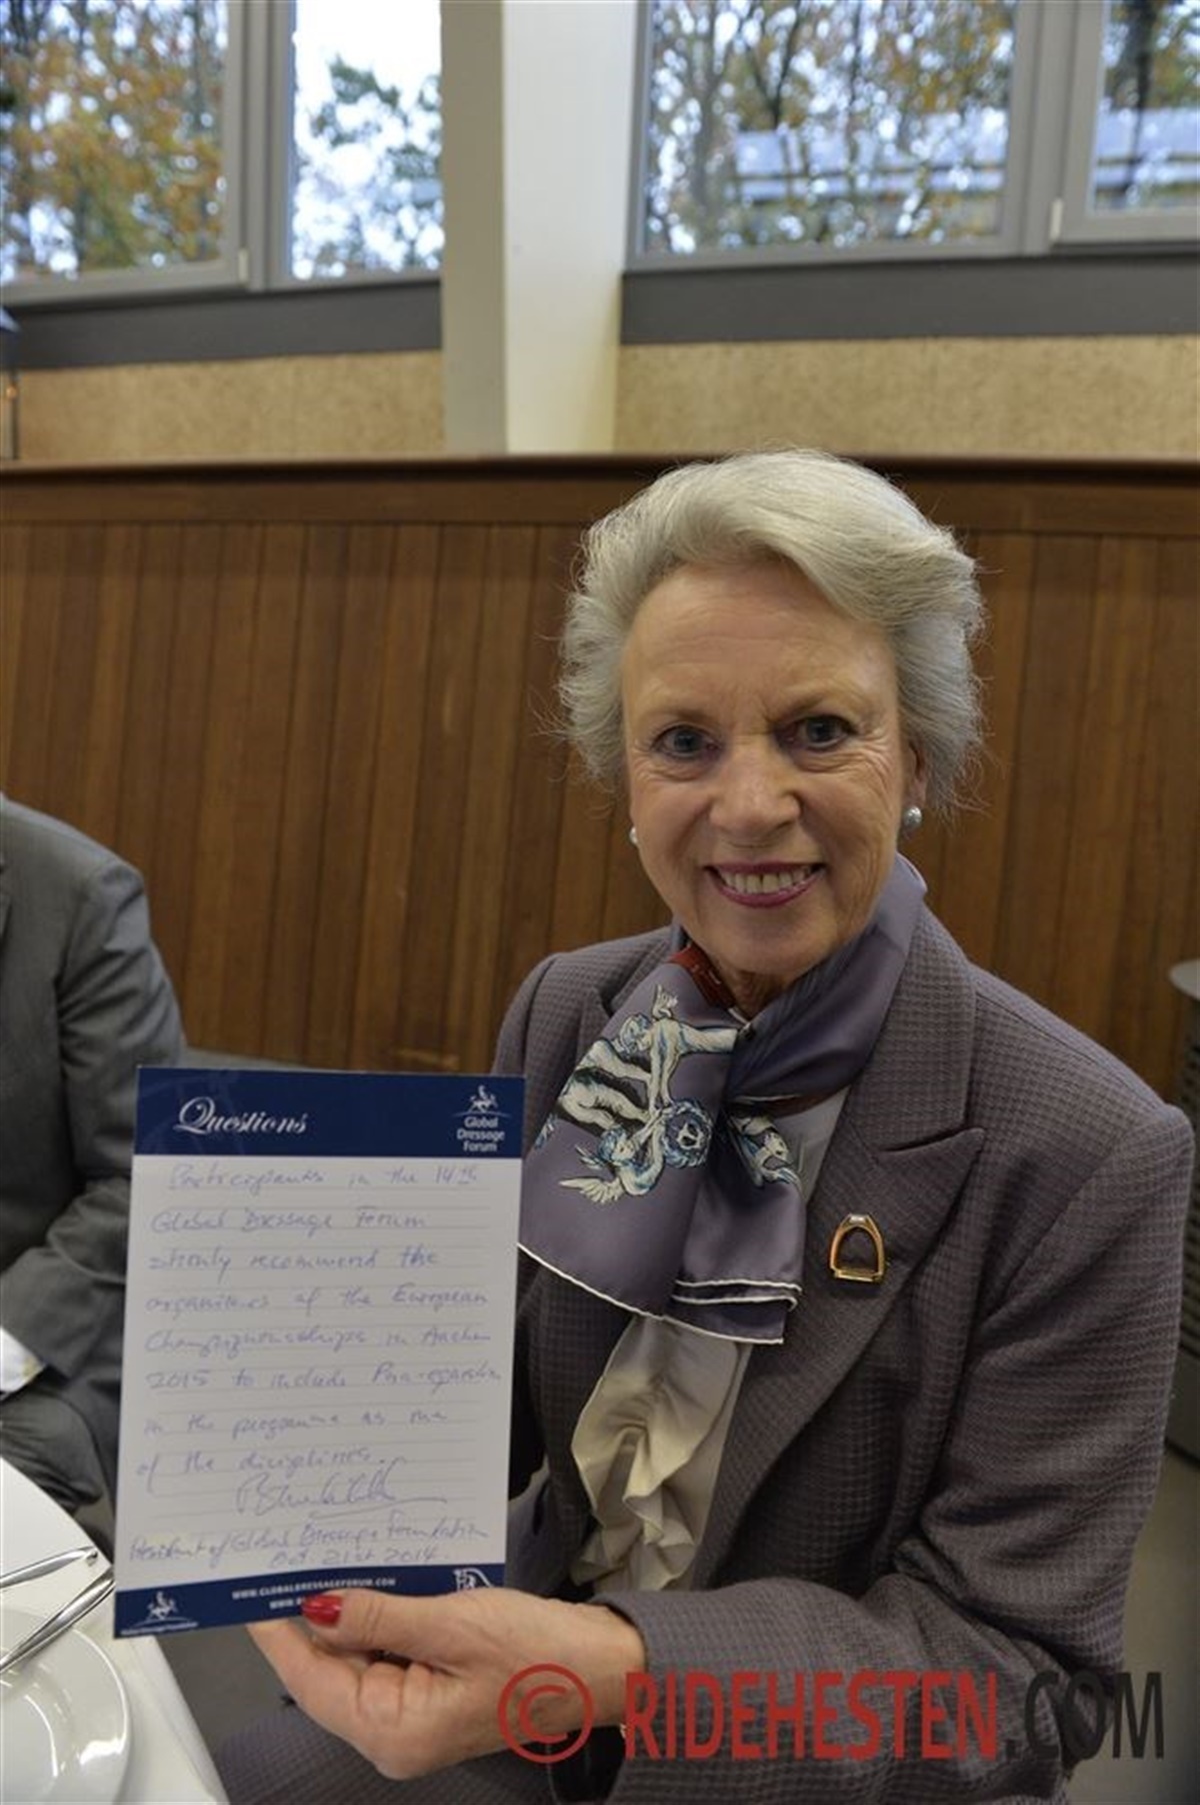 Questions
Global
Dressage
Forum
Participants in the 14th
Global Dressage Forum
stronly recommend the
organizers of the European
Championsships in Aachen
2015 to include Para-equestrian
in the programme as one
of the disciplines.
President of Global Dressage Foundation
Oct 21st 2014.
WWW.GLOBALDRESSAGEFORUM.COM
WWW.
© RIDEHESTEN.COM